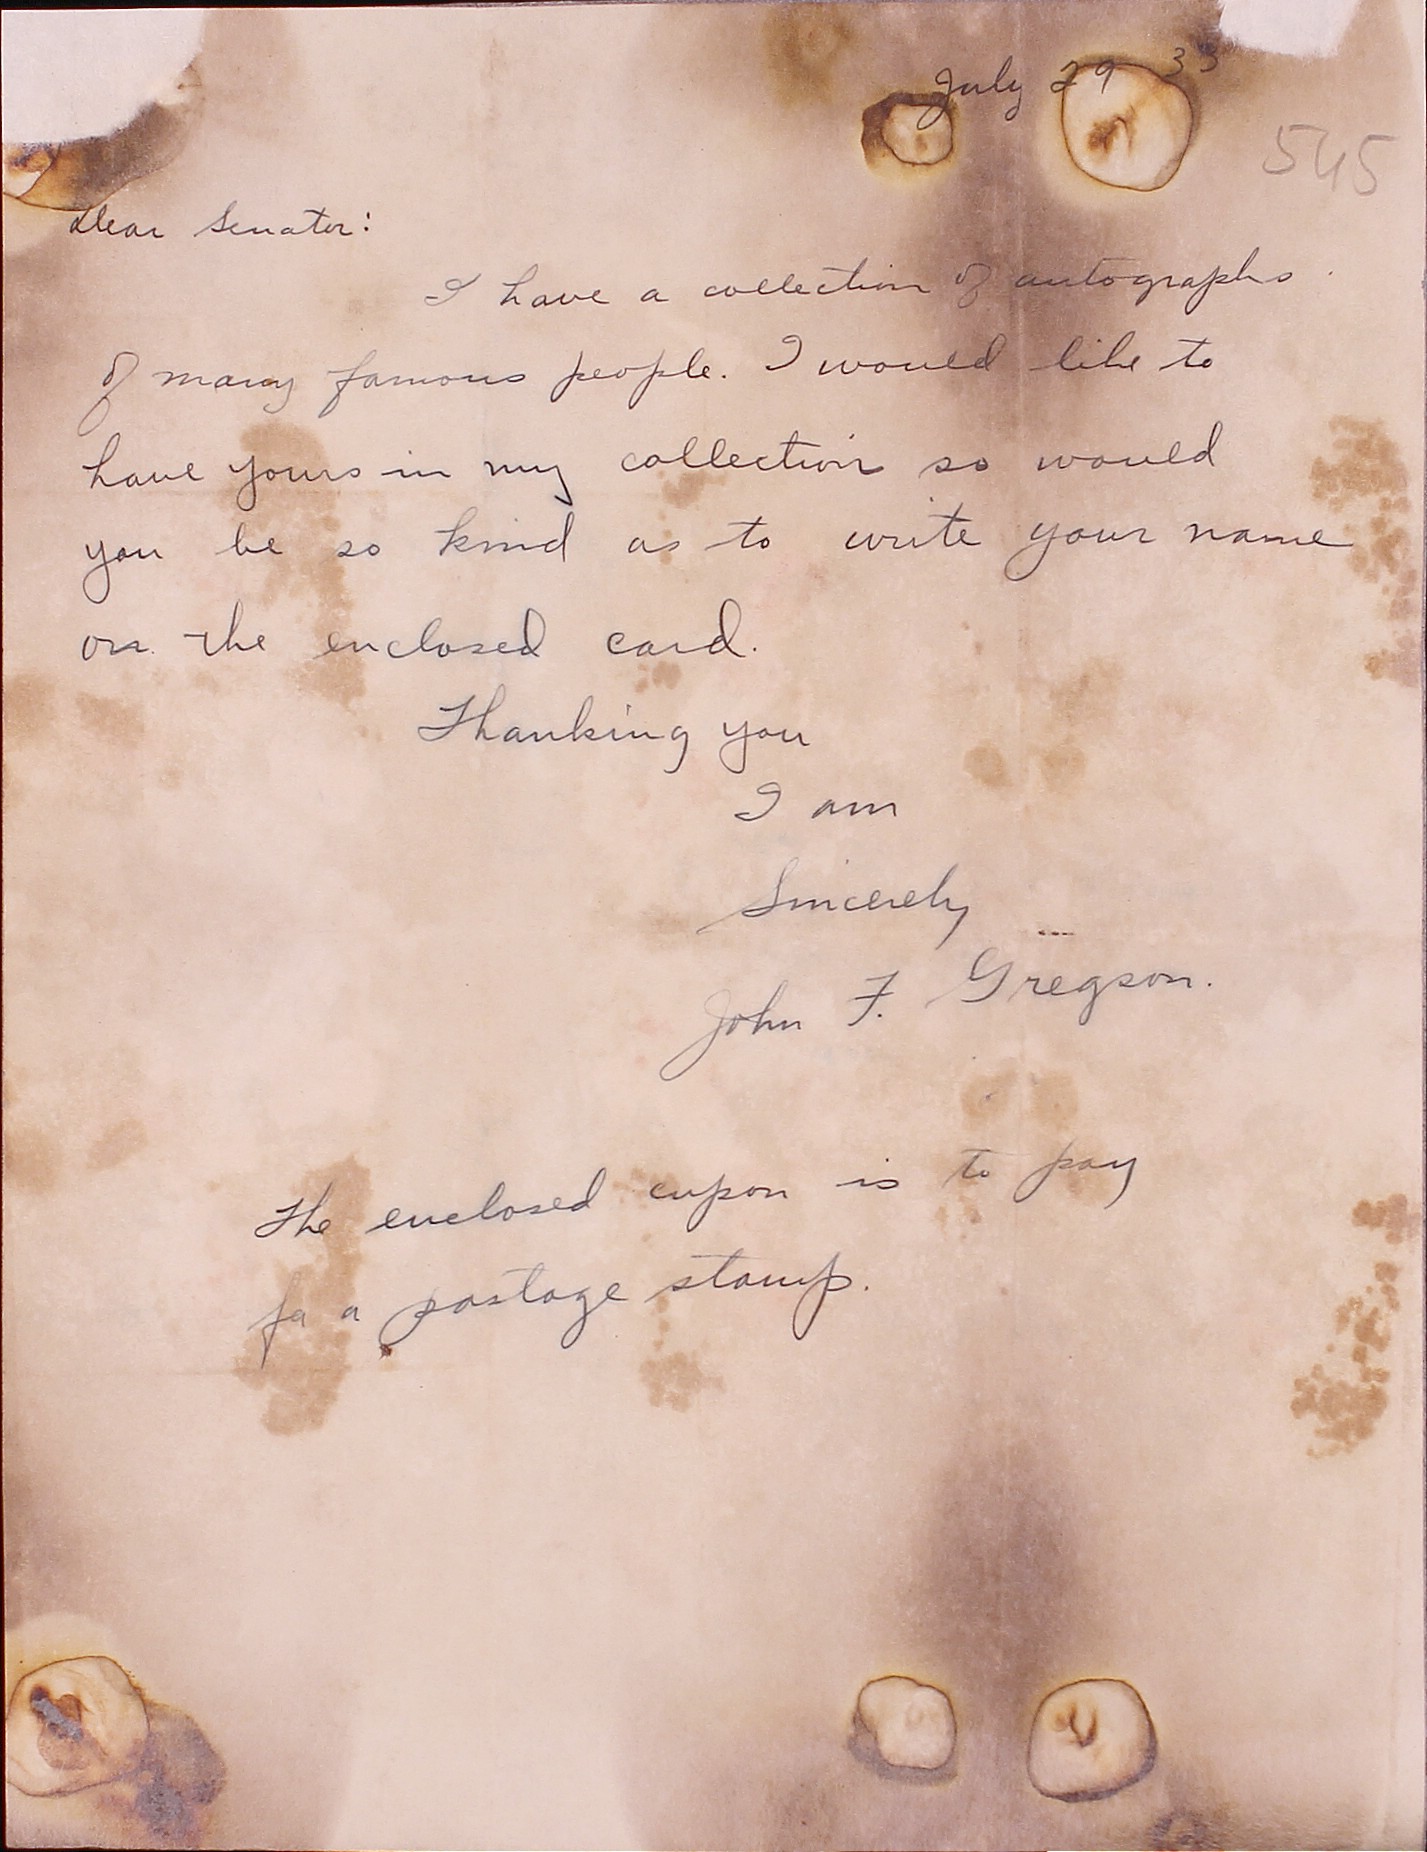 July 29 33
545
Dear Senator:
I have a collection of autographs
of many famous people. I would like to
have yours in my collection so would
you be so kind as to write your name
on the enclosed card.
Thanking you
I am
Sincerely
John F. Gregson.
The enclosed cupon is to pay
for a postage stamp.